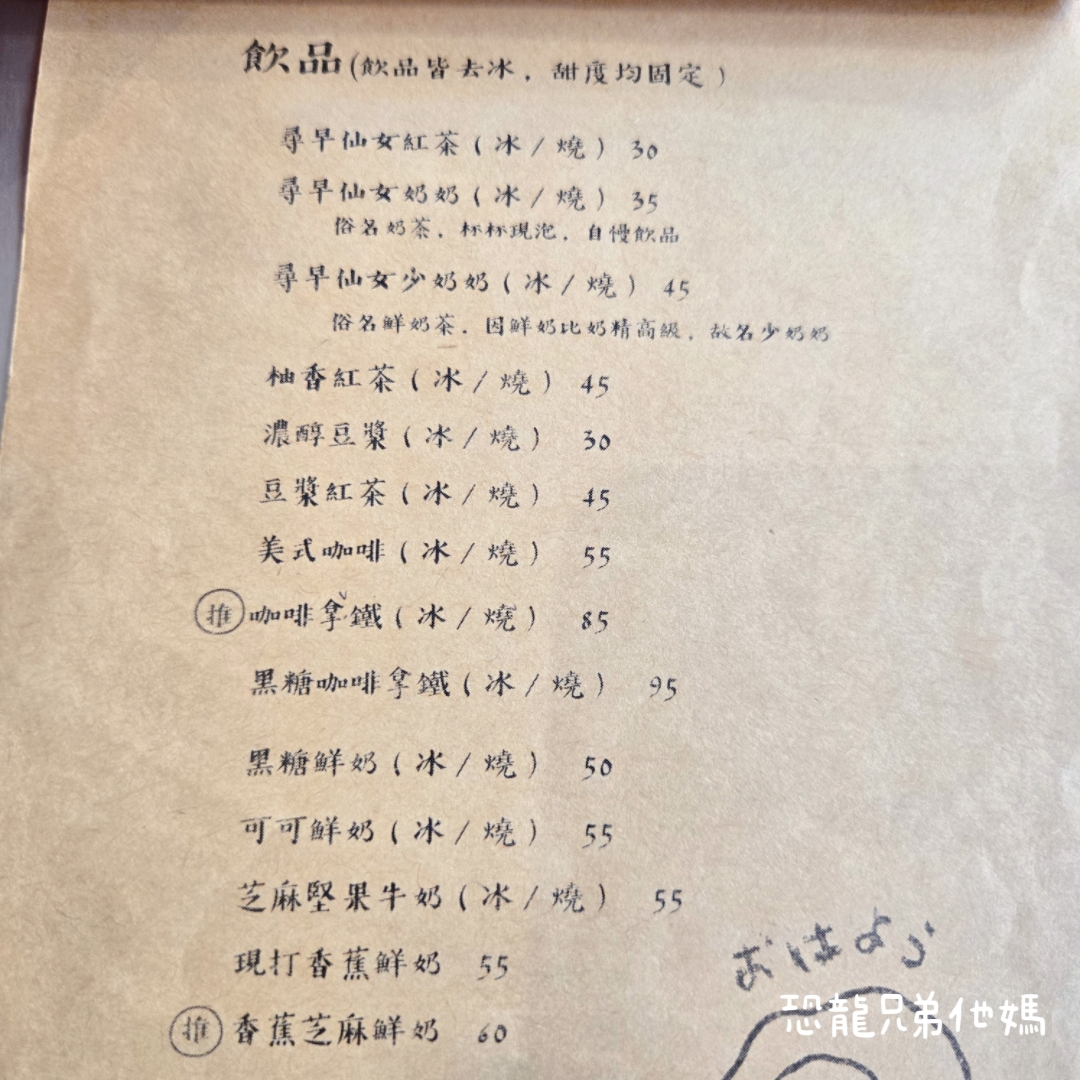 飲品(飲品皆去冰，甜度均固定)
尋早仙女紅茶(冰/燒) 30
尋早仙女奶奶(冰/燒) 35
俗名奶茶，杯杯現泡，自慢飲品
尋早仙女少奶奶(冰/燒) 45
俗名鮮奶茶，因鮮奶比奶精高級，故名少奶奶
柚香紅茶(冰/燒) 45
濃醇豆漿(冰/燒) 30
豆漿紅茶(冰/燒) 45
美式咖啡(冰/燒) 55
推 咖啡拿鐵(冰/燒) 85
黑糖咖啡拿鐵(冰/燒) 95
黑糖鮮奶(冰/燒) 50
可可鮮奶(冰/燒) 55
芝麻堅果牛奶(冰/燒) 55
現打香蕉鮮奶 55
推 香蕉芝麻鮮奶 60
おはよう
恐龍兄弟他媽